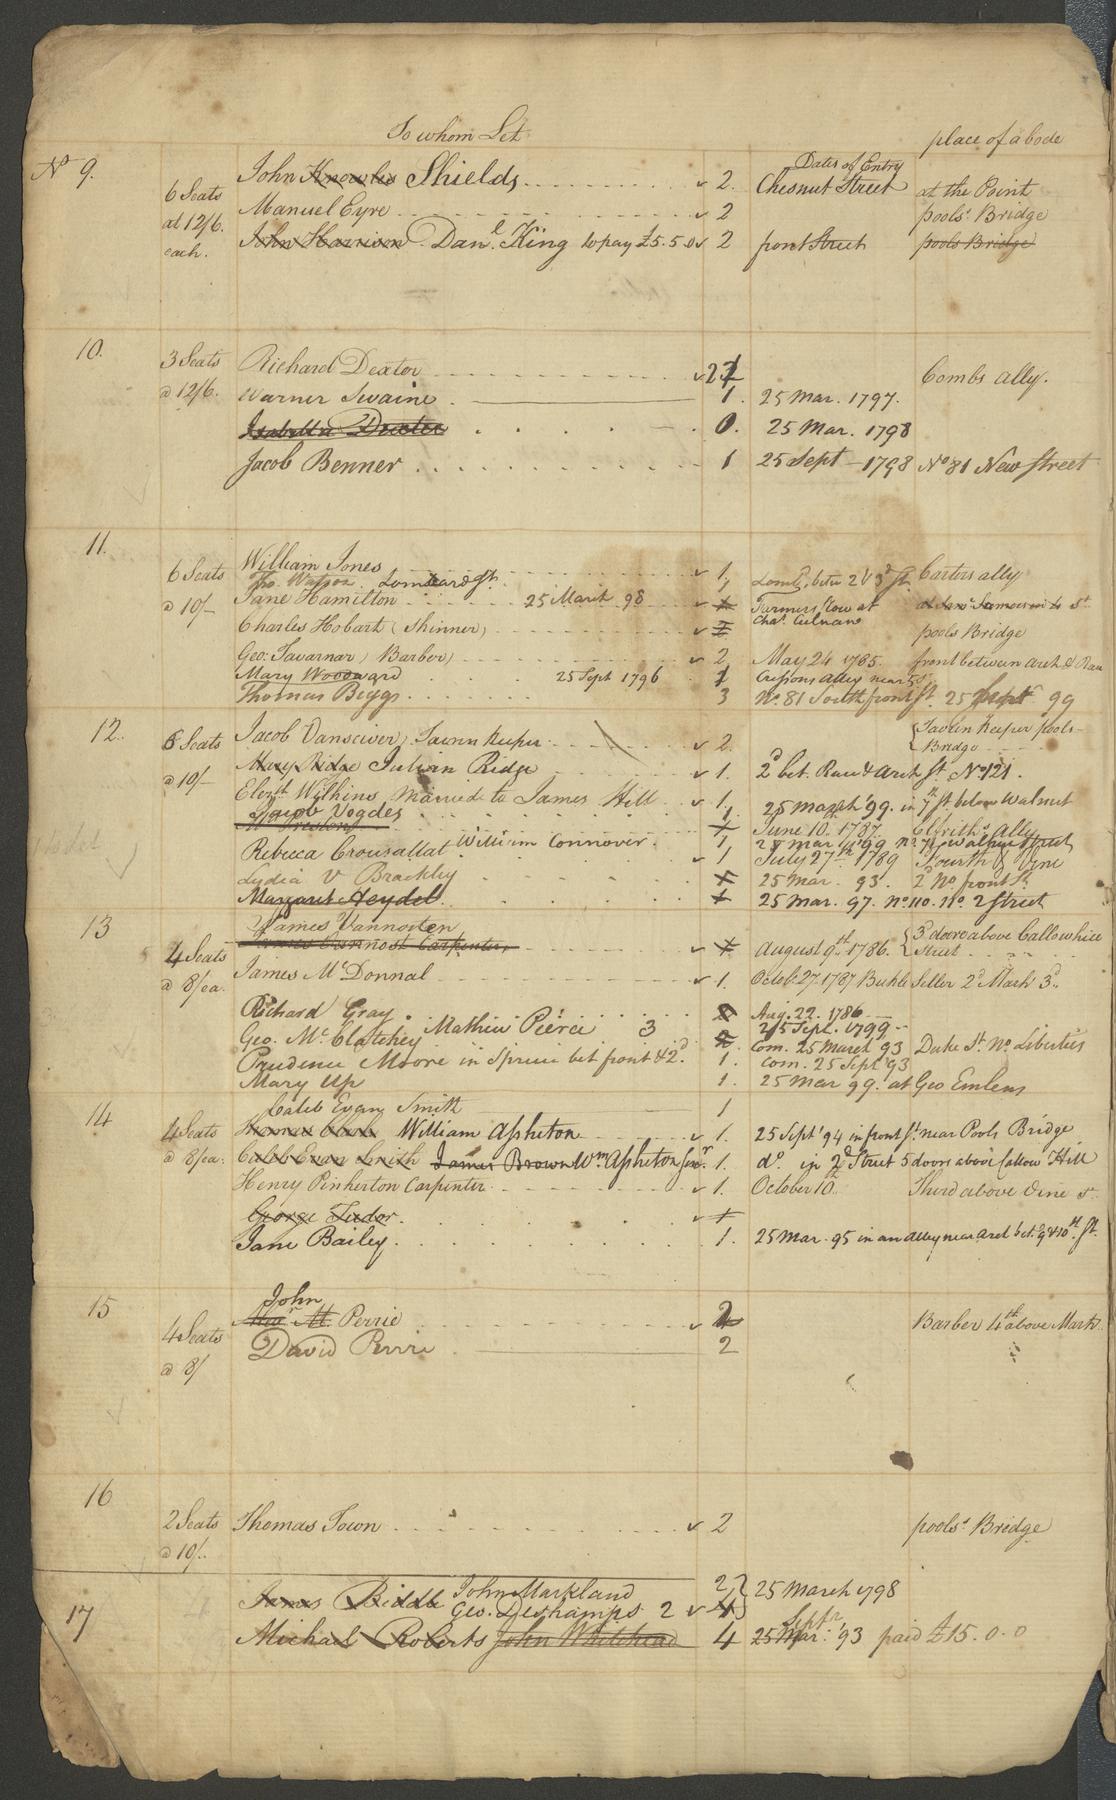 To whom Let place of abode
Dates of Entry
No 9. John Knowles Shields 2. Chesnut Street at the Point
6 Seats Manuel Eyre 2 pools Bridge
at 12/6. John Harrison Danl. King to pay £5.5.0 2 front Street pools Bridge
each.
10. 3 Seats Richard Dexter 2 Combs ally.
@ 12/6. Warner Swaine 1. 25 Mar. 1797.
Isabella Dexter 0. 25 Mar. 1798
Jacob Benner 1 25 Sept 1798 No 81 New Street
11. William Jones 1. Carters ally
6 Seats Tho. Watson Lombard St. 1 Lomb. betw 2 & 3d St.
@ 10/- Jane Hamilton 25 March 98 1 Farmers Row at
Chas.
Charles Hobart (Skinner) pools Bridge
Geo: Tavarnar (Barber) 2 May 24 1785. front between arch & Race
Mary Woodward 25 Sept 1796 1 Cressons alley near 5 St
Thomas Beggs 3 No. 81 South front St. 25 Sept 99
12. 6 Seats Jacob Vansciver, Tavern Keeper 2. Tavern Keeper pools
Bridge
Mary Ridge Julian Ridge 1. 2d bet. Race & Arch St. No 121.
@ 10/- Elizth Wilkins Married to James Hill 1. 25 March '99. in 7th St. below Walnut
Jacob Vogdes 1
June 10th. 1787. Elfriths Ally
William Connover 1, 25 Mar
Rebecca Crousallat 1 July 27th 1789 Fourth & Vine
Lydia V Brackley 1 25 Mar. 93. 2d No. front St.
Margaret Heydel 1 25 Mar. 97. No. 110. No. 2 Street
13 James Vannosten
4 Seats James Vannost Carpenter 1 August 9th. 1786. 3d doore above Callowhill
Street
@ 8/ ea. James McDonnal 1. Octobr. 27. 1787 Buckle Seller 2d Mach 3d.
Richard Gray. 2 Aug. 22. 1786
Mathew Peirce 3 25 Sept. 1799
Geo. McClatchey 2. Com. 25 March 93 Duke St. No. Liberties
Prudence Moore in Spruce bet front & 2d. 1. Com. 25 Sept 93
Mary Up 1. 25 Mar 99. at Geo Emlens
14 Caleb Evan Smith 1
4 Seats Thomas Clark William Asheton 1. 25 Sept '94 in front St. near Pools Bridge
@ 8/ ea. Caleb Evan Smith James Brown Wm Asheton Junr. 1. do. in 2d Street 5 doors above Callow Hill
Henry Pinkerton Carpenter 1. October 10th. Third above Vine St.
George Tudor. 1
Jane Bailey. 1. 25 Mar. 95 in an alley near Arch bet. 9 & 10th St.
15 John
4 Seats M. Perrie 2 Barber 4th above Markt.
@ 8/ David Perrie 2
16 2 Seats Thomas Town 2 pools. Bridge
@ 10/.
17 James Biddle John Markland 2 25 March 1798
Geo. Deshamps 2 4
Septr
Michael Roberts John Whitehead 4 25 Mar: '93 paid £15.0.0